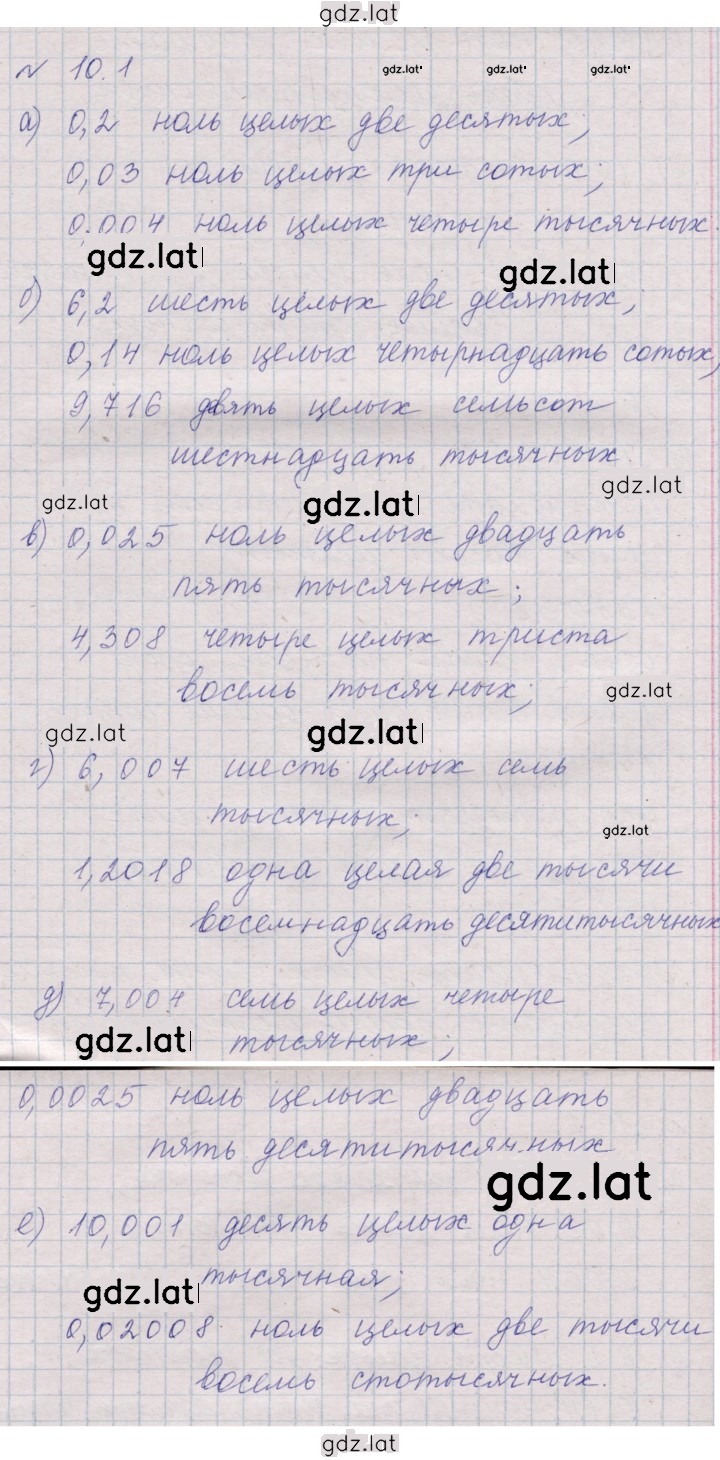 gdz.lat
№ 10.1 gdz.lat gdz.lat gdz.lat
а) 0,2 ноль целых две десятых;
0,03 ноль целых три сотых;
0.004 ноль целых четыре тысячных.
gdz.lat gdz.lat
б) 6,2 шесть целых две десятых;
0,14 ноль целых четырнадцать сотых,
9,716 двять целых семьсот
шестнадцать тысячных.
gdz.lat gdz.lat gdz.lat
в) 0,025 ноль целых двадцать
пять тысячных;
4,308 четыре целых триста
восемь тысячных; gdz.lat
gdz.lat gdz.lat
г) 6,007 шесть целых семь
тысячных;
gdz.lat
1,2018 одна целая две тысячи
восемнадцать десятитысячных
д) 7,004 семь целых четыре
gdz.lat тысячных;
0,0025 ноль целых двадцать
пять десятитысячных
gdz.lat
е) 10,001 десять целых одна
gdz.lat тысячная;
0,02008 ноль целых две тысячи
восемь стотысячных.
gdz.lat